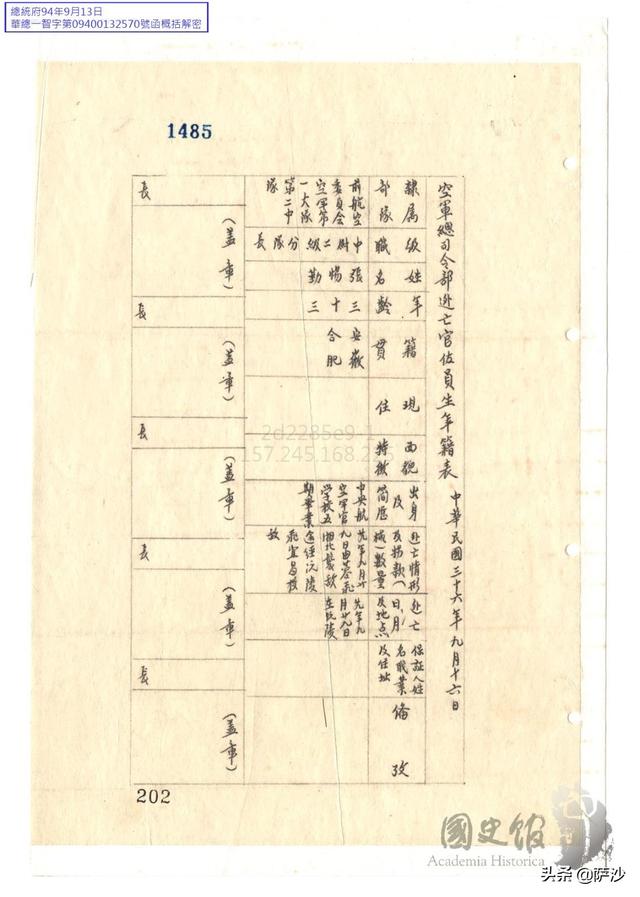 總統府94年9月13日
華總一智字第09400132570號函概括解密
1485
空軍總司令部逃亡官佐員生年籍表
中華民國三十六年九月十六日
隸屬部隊
級職
姓名
年齡
籍貫
現住
面貌特徵
出身及簡歷
逃亡情形及拐款(械)數量
逃亡日、月及地点
保証人姓名職業及住址
備攷
前航空
委員會
空軍第
一大隊
第二中
隊
中尉二級分隊長
張惕勤
三十三
安徽
合肥
中央航
空軍官
學校五
期畢業
九日由
湘北
沅陵
宜昌
故
月廿九日
在沅陵
長
(蓋章)
長
(蓋章)
長
(蓋章)
長
(蓋章)
長
(蓋章)
202
2d2285e9-1
157.245.168.226
國史館
Academia Historica
头条@萨沙